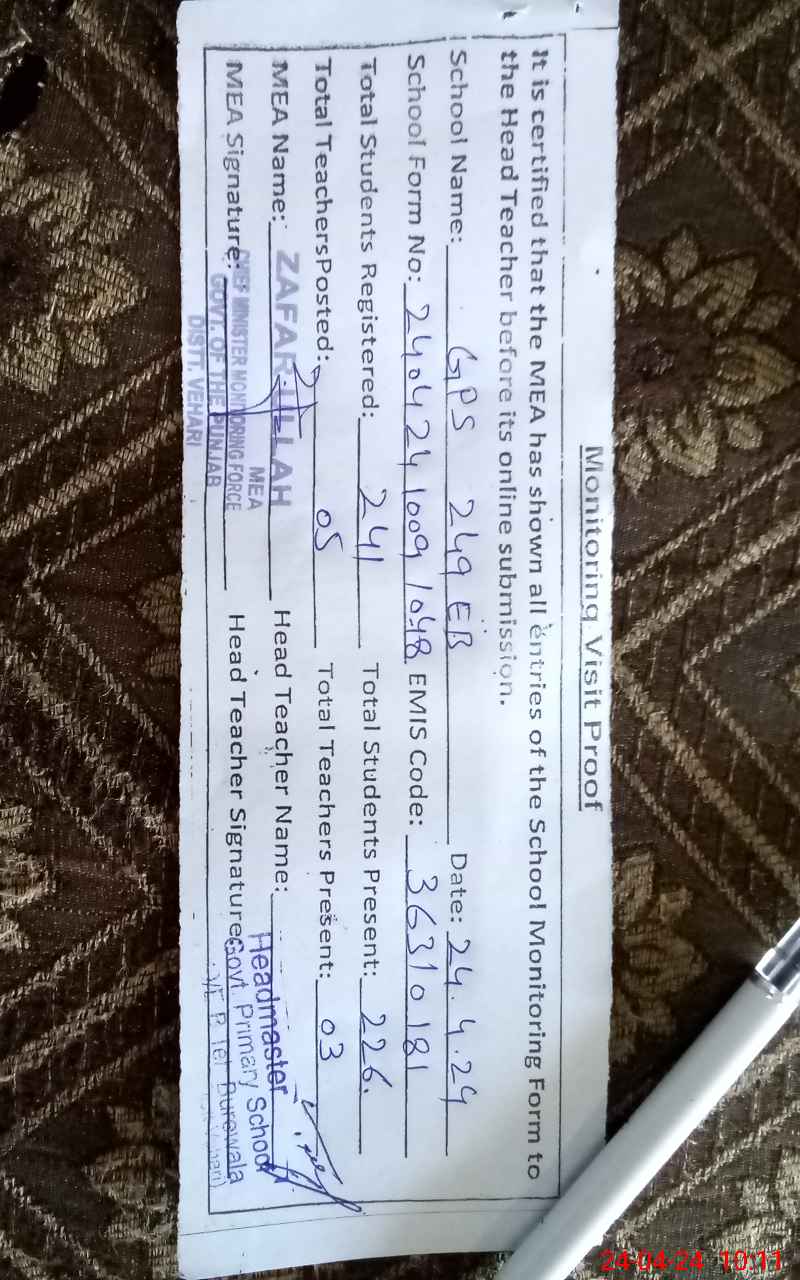 Monitoring Visit Proof
It is certified that the MEA has shown all entries of the School Monitoring Form to
the Head Teacher before its online submission.
School Name: GPS 249 EB Date: 24.4.24
School Form No: 240424 1009 1048 EMIS Code: 36310181
Total Students Registered: 241 Total Students Present: 226.
Total TeachersPosted: 05 Total Teachers Present: 03
MEA Name: ZAFAR ULLAH Head Teacher Name:
MEA
MEA Signature: Head Teacher Signature:
CHIEF MINISTER MONITORING FORCE
GOVT. OF THE PUNJAB
DISTT. VEHARI
Headmaster
Govt. Primary School
Burewala
24-04-24 10:11